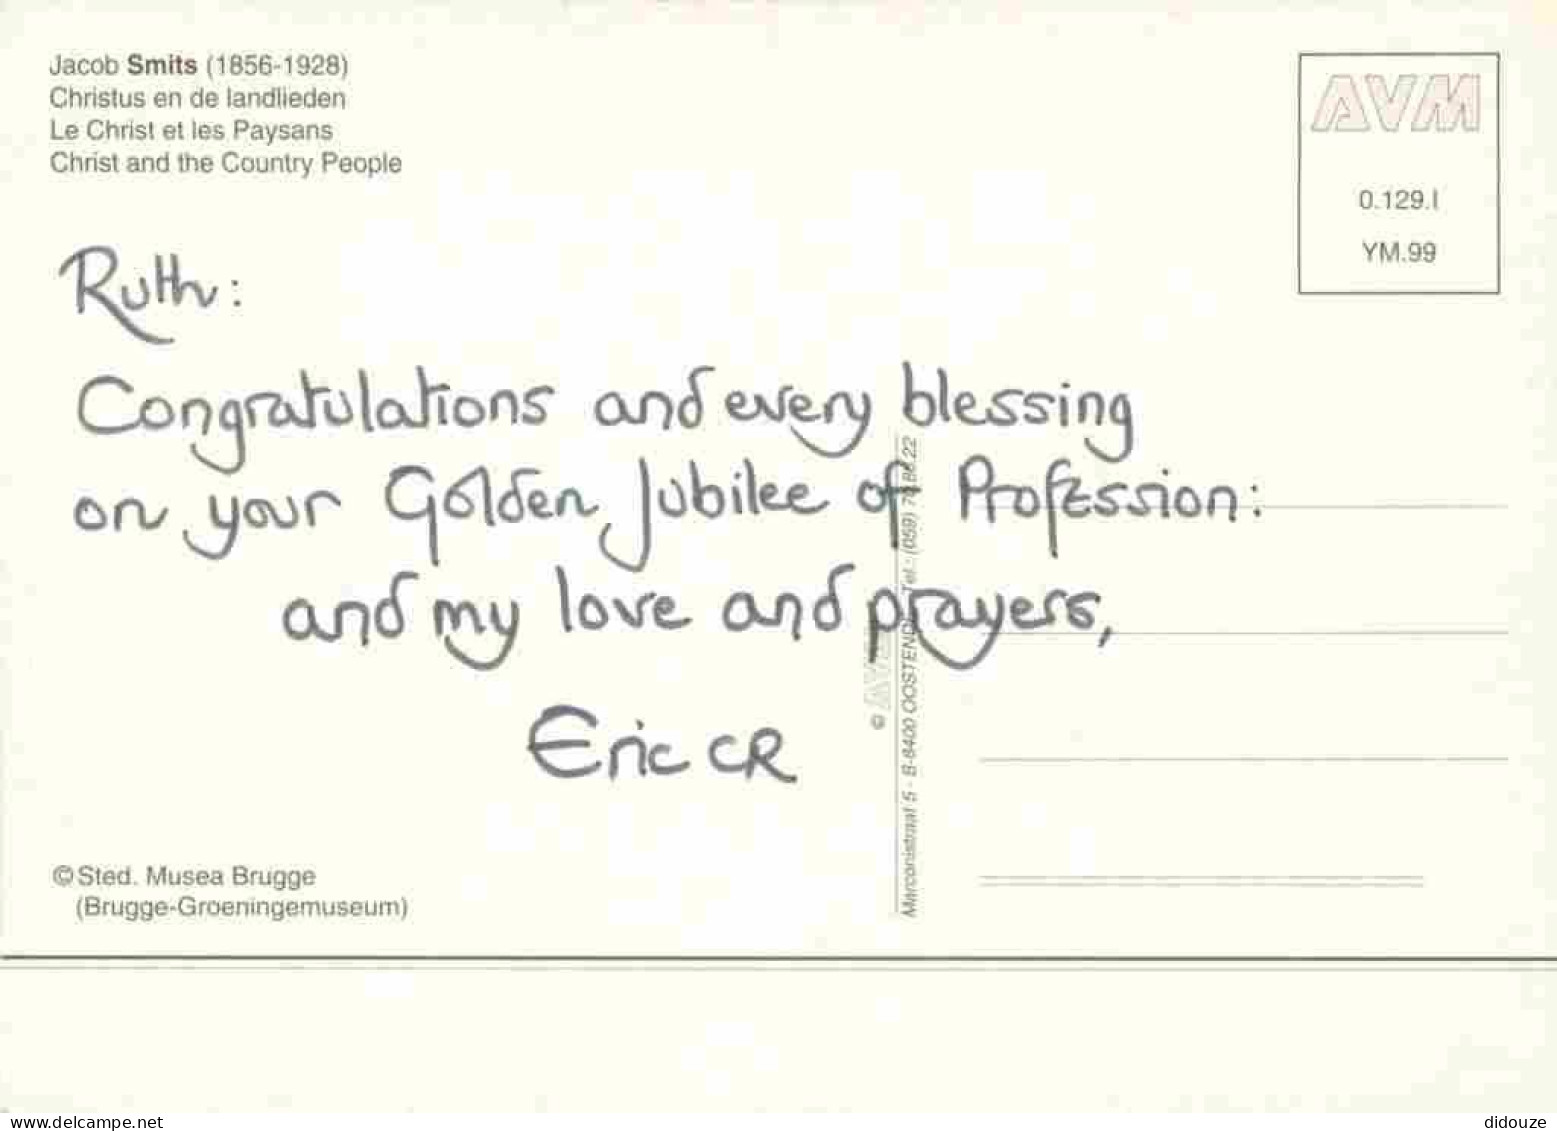 Jacob Smits (1856-1928)
Christus en de landlieden
Le Christ et les Paysans
Christ and the Country People
AVM
0.129.I
YM.99
Ruth:
Congratulations and every blessing
on your Golden Jubilee of Profession:
and my love and prayers,
Eric CR
© Sted. Musea Brugge
(Brugge-Groeningemuseum)
© AVM
Marconistraat 5 - B-8400 OOSTENDE Tel.: (059)
www.delcampe.net
didouze